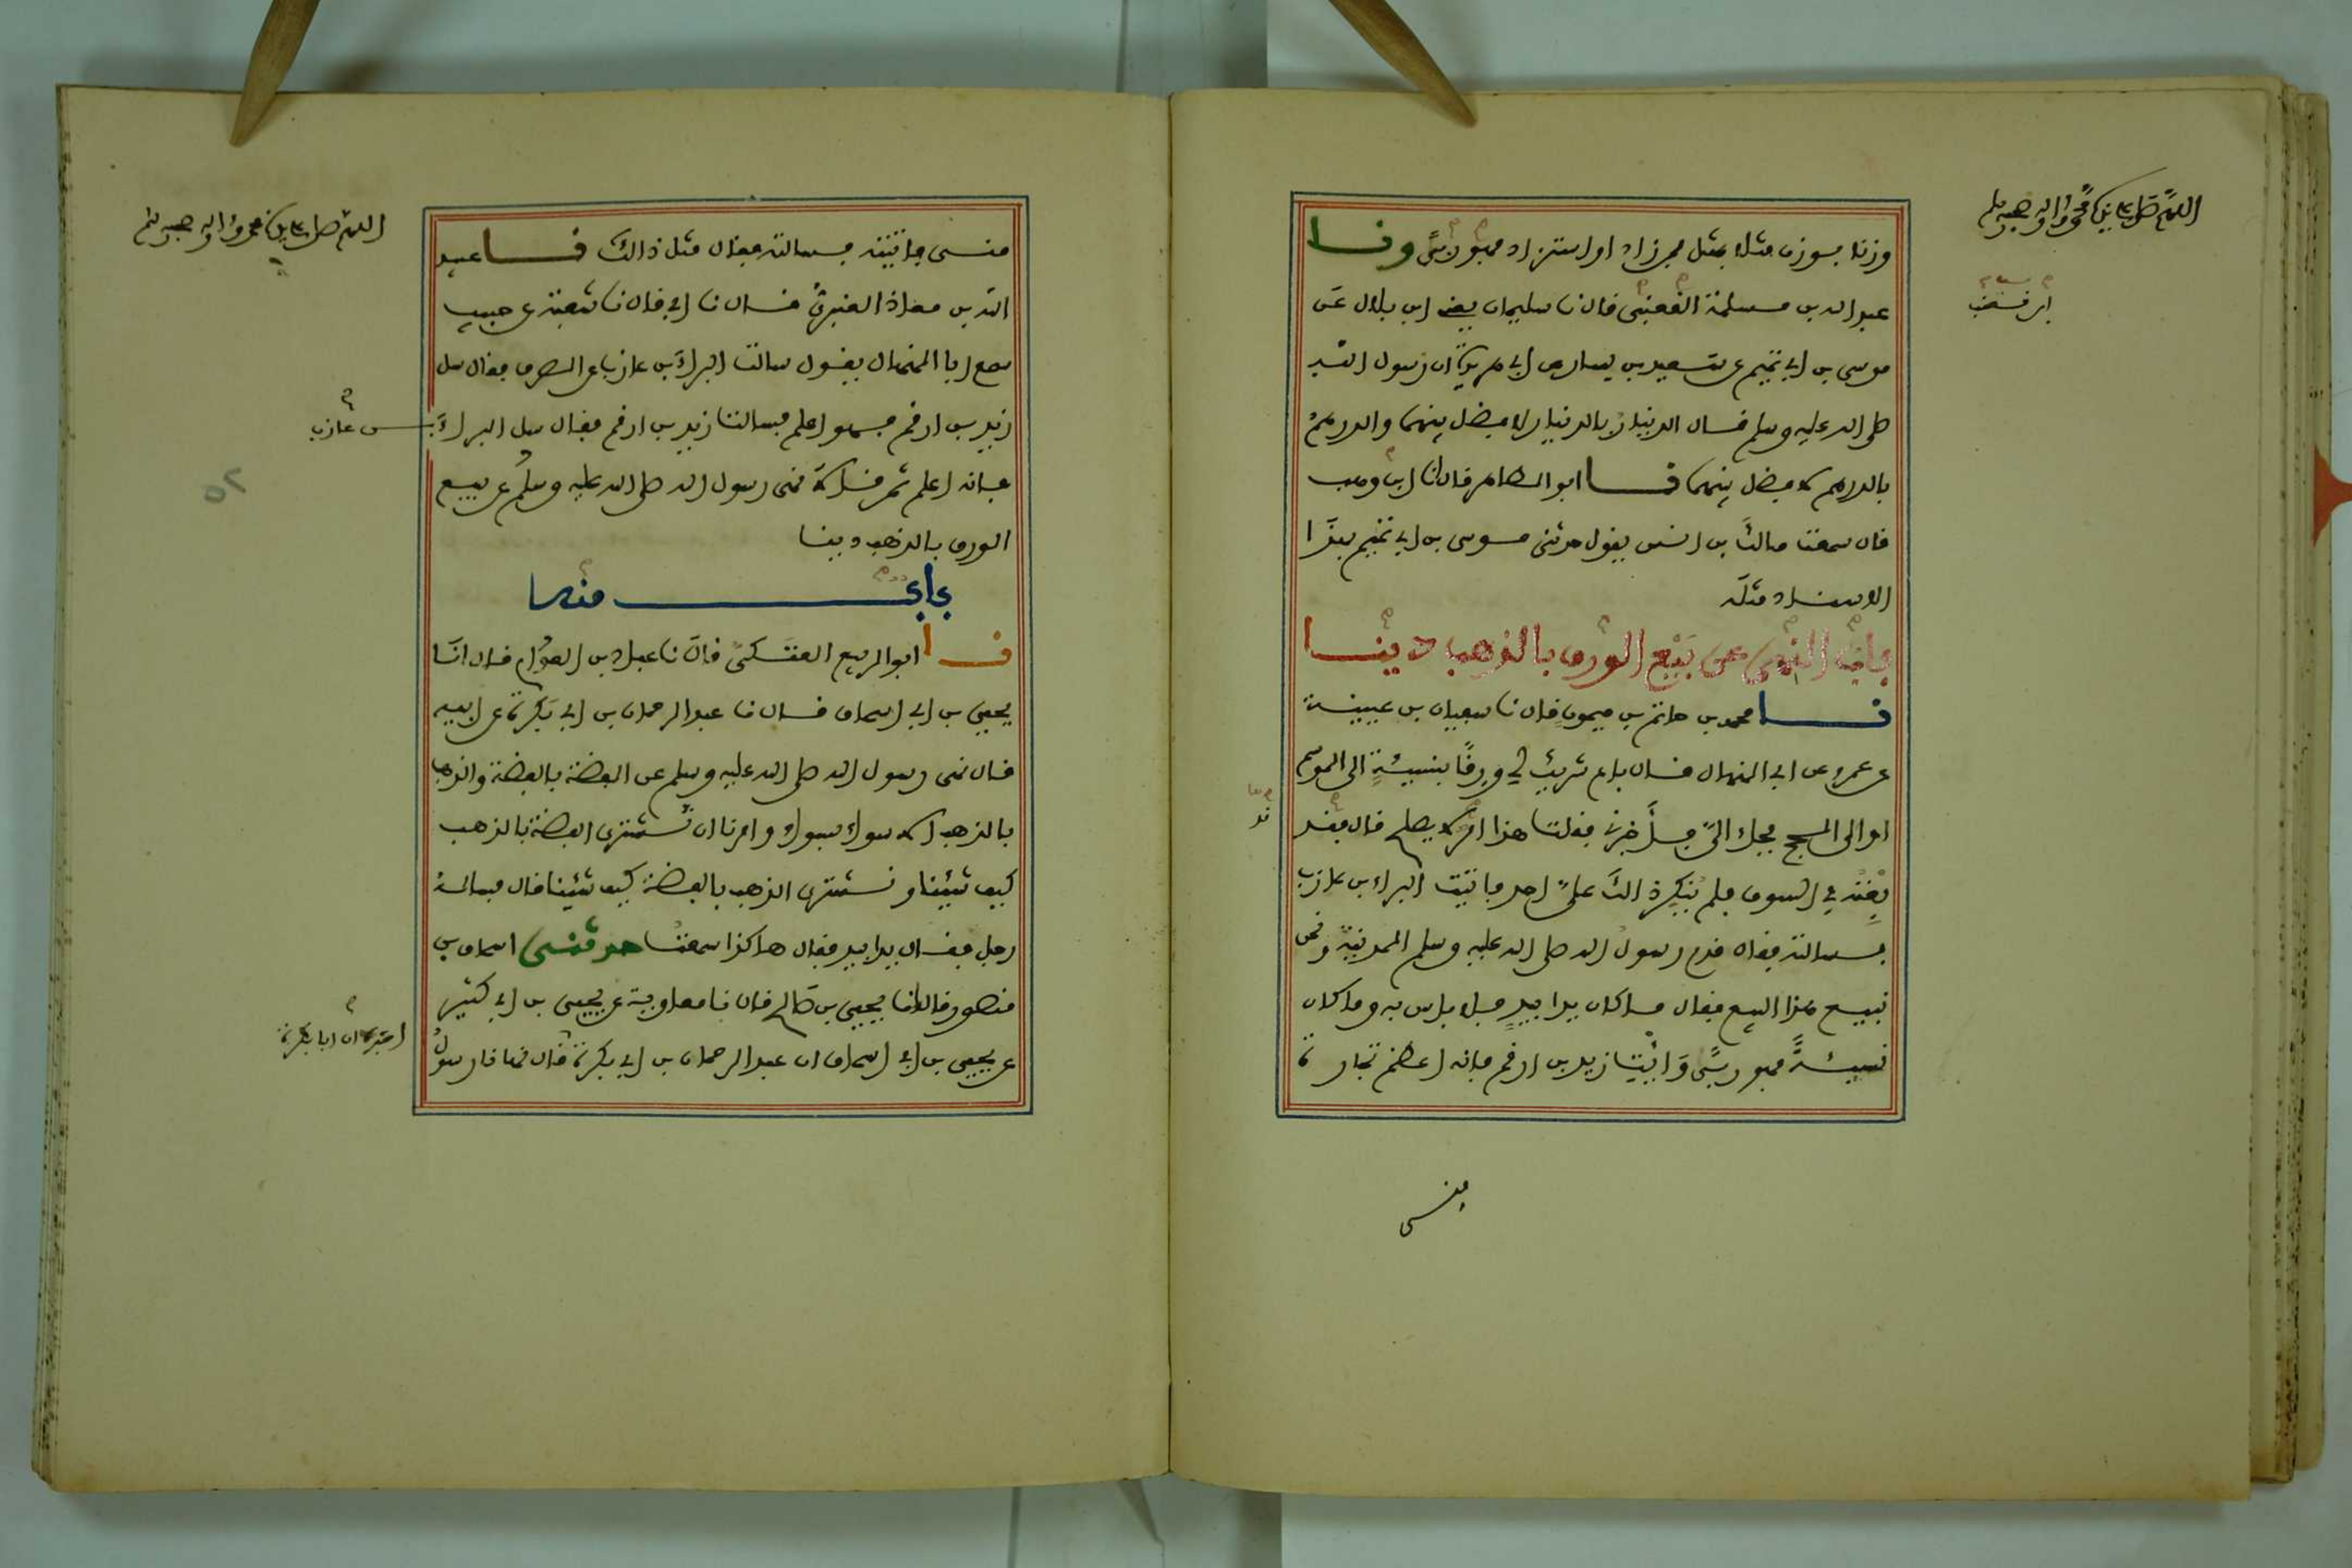 اللهم صل على نبينا محمد وآله وصحبه وسلم
وزنا بوزن مثلا بمثل فمن زاد او استزاد فهو ربى ونا
عبد الله بن مسلمة القعنبي قال نا سليمان يعني ابن بلال عن
موسى بن ابي تميم عن سعيد بن يسار عن ابي هريرة ان رسول الله
صلى الله عليه وسلم قال الدينار بالدينار لا فضل بينهما والدرهم
بالدرهم لا فضل بينهما نا ابو الطاهر قال انا ابن وهب
قال سمعت مالك بن انس يقول حدثني موسى بن ابي تميم بهذا
الاسناد مثله
باب النهي عن بيع الورق بالذهب دينا
نا محمد بن حاتم بن ميمون قال نا سفيان بن عيينة
عن عمرو عن ابي المنهال قال باع شريك لي ورقا بنسيئة الى الموسم
او الى الحج فجاء الي فاخبرني فقلت هذا امر لا يصلح قال فقد
بعته في السوق فلم ينكر ذالك علي احد فاتيت البراء بن عازب
فسالته فقال قدم رسول الله صلى الله عليه وسلم المدينة ونحن
نبيع هذا البيع فقال ما كان يدا بيد فلا باس به وما كان
نسيئة فهو ربى وايت زيد بن ارقم فانه اعظم تجارة
مني
اللهم صل على نبينا محمد وآله وصحبه وسلم
مني فاتيته فسالته فقال مثل ذالك نا عبيد
الله بن معاذ العنبري قال نا ابي قال نا شعبة عن حبيب
سمع ابا المنهال يقول سالت البراء بن عازب عن الصرف فقال سل
زيد بن ارقم فهو اعلم فسالت زيد بن ارقم فقال سل البراء
بن عازب
فانه اعلم ثم قالا نهى رسول الله صلى الله عليه وسلم عن بيع
الورق بالذهب دينا
باب منه
نا ابو الربيع العتكي قال نا عباد بن العوام قال انا
يحيى بن ابي اسحاق قال نا عبد الرحمان بن ابي بكرة عن ابيه
قال نهى رسول الله صلى الله عليه وسلم عن الفضة بالفضة والذهب
بالذهب الا سواء بسواء وامرنا ان نشتري الفضة بالذهب
كيف شئنا ونشتري الذهب بالفضة كيف شئنا قال فساله
رجل فقال يدا بيد فقال هاكذا سمعت حدثني اسحاق بن
منصور قال انا يحيى بن صالح قال نا معاوية عن يحيى بن ابي كثير
عن يحيى بن ابي اسحاق ان عبد الرحمان بن ابي بكرة قال نهانا رسول
اخبره ان ابا بكرة
٥٢